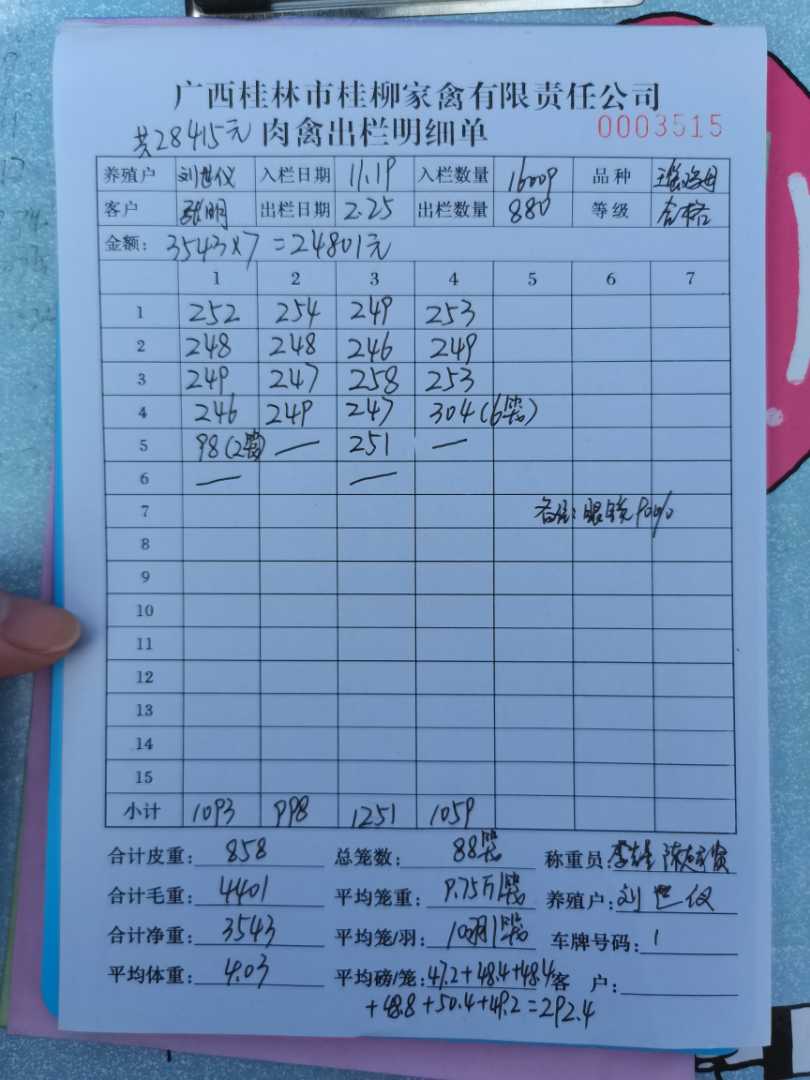 广西桂林市桂柳家禽有限责任公司
共28415元 肉禽出栏明细单 0003515
养殖户 刘世仪 入栏日期 11.19 入栏数量 16009 品种
客户 张明 出栏日期 2.25 出栏数量 880 等级 合格
金额: 3543×7=24801元
1 2 3 4 5 6 7
1 252 254 249 253
2 248 248 246 249
3 249 247 258 253
4 246 249 247 304(6笼)
5 98(2笼) — 251 —
6 — —
7 备注:
8
9
10
11
12
13
14
15
小计 1093 998 1251 1059
合计皮重: 858 总笼数: 88笼 称重员:
合计毛重: 4401 平均笼重: 9.75斤/笼 养殖户: 刘世仪
合计净重: 3543 平均笼/羽: 10羽/笼 车牌号码: 1
平均体重: 4.03 平均磅/笼: 47.2+48.4+48.4 客户:
+48.8+50.4+49.2=292.4